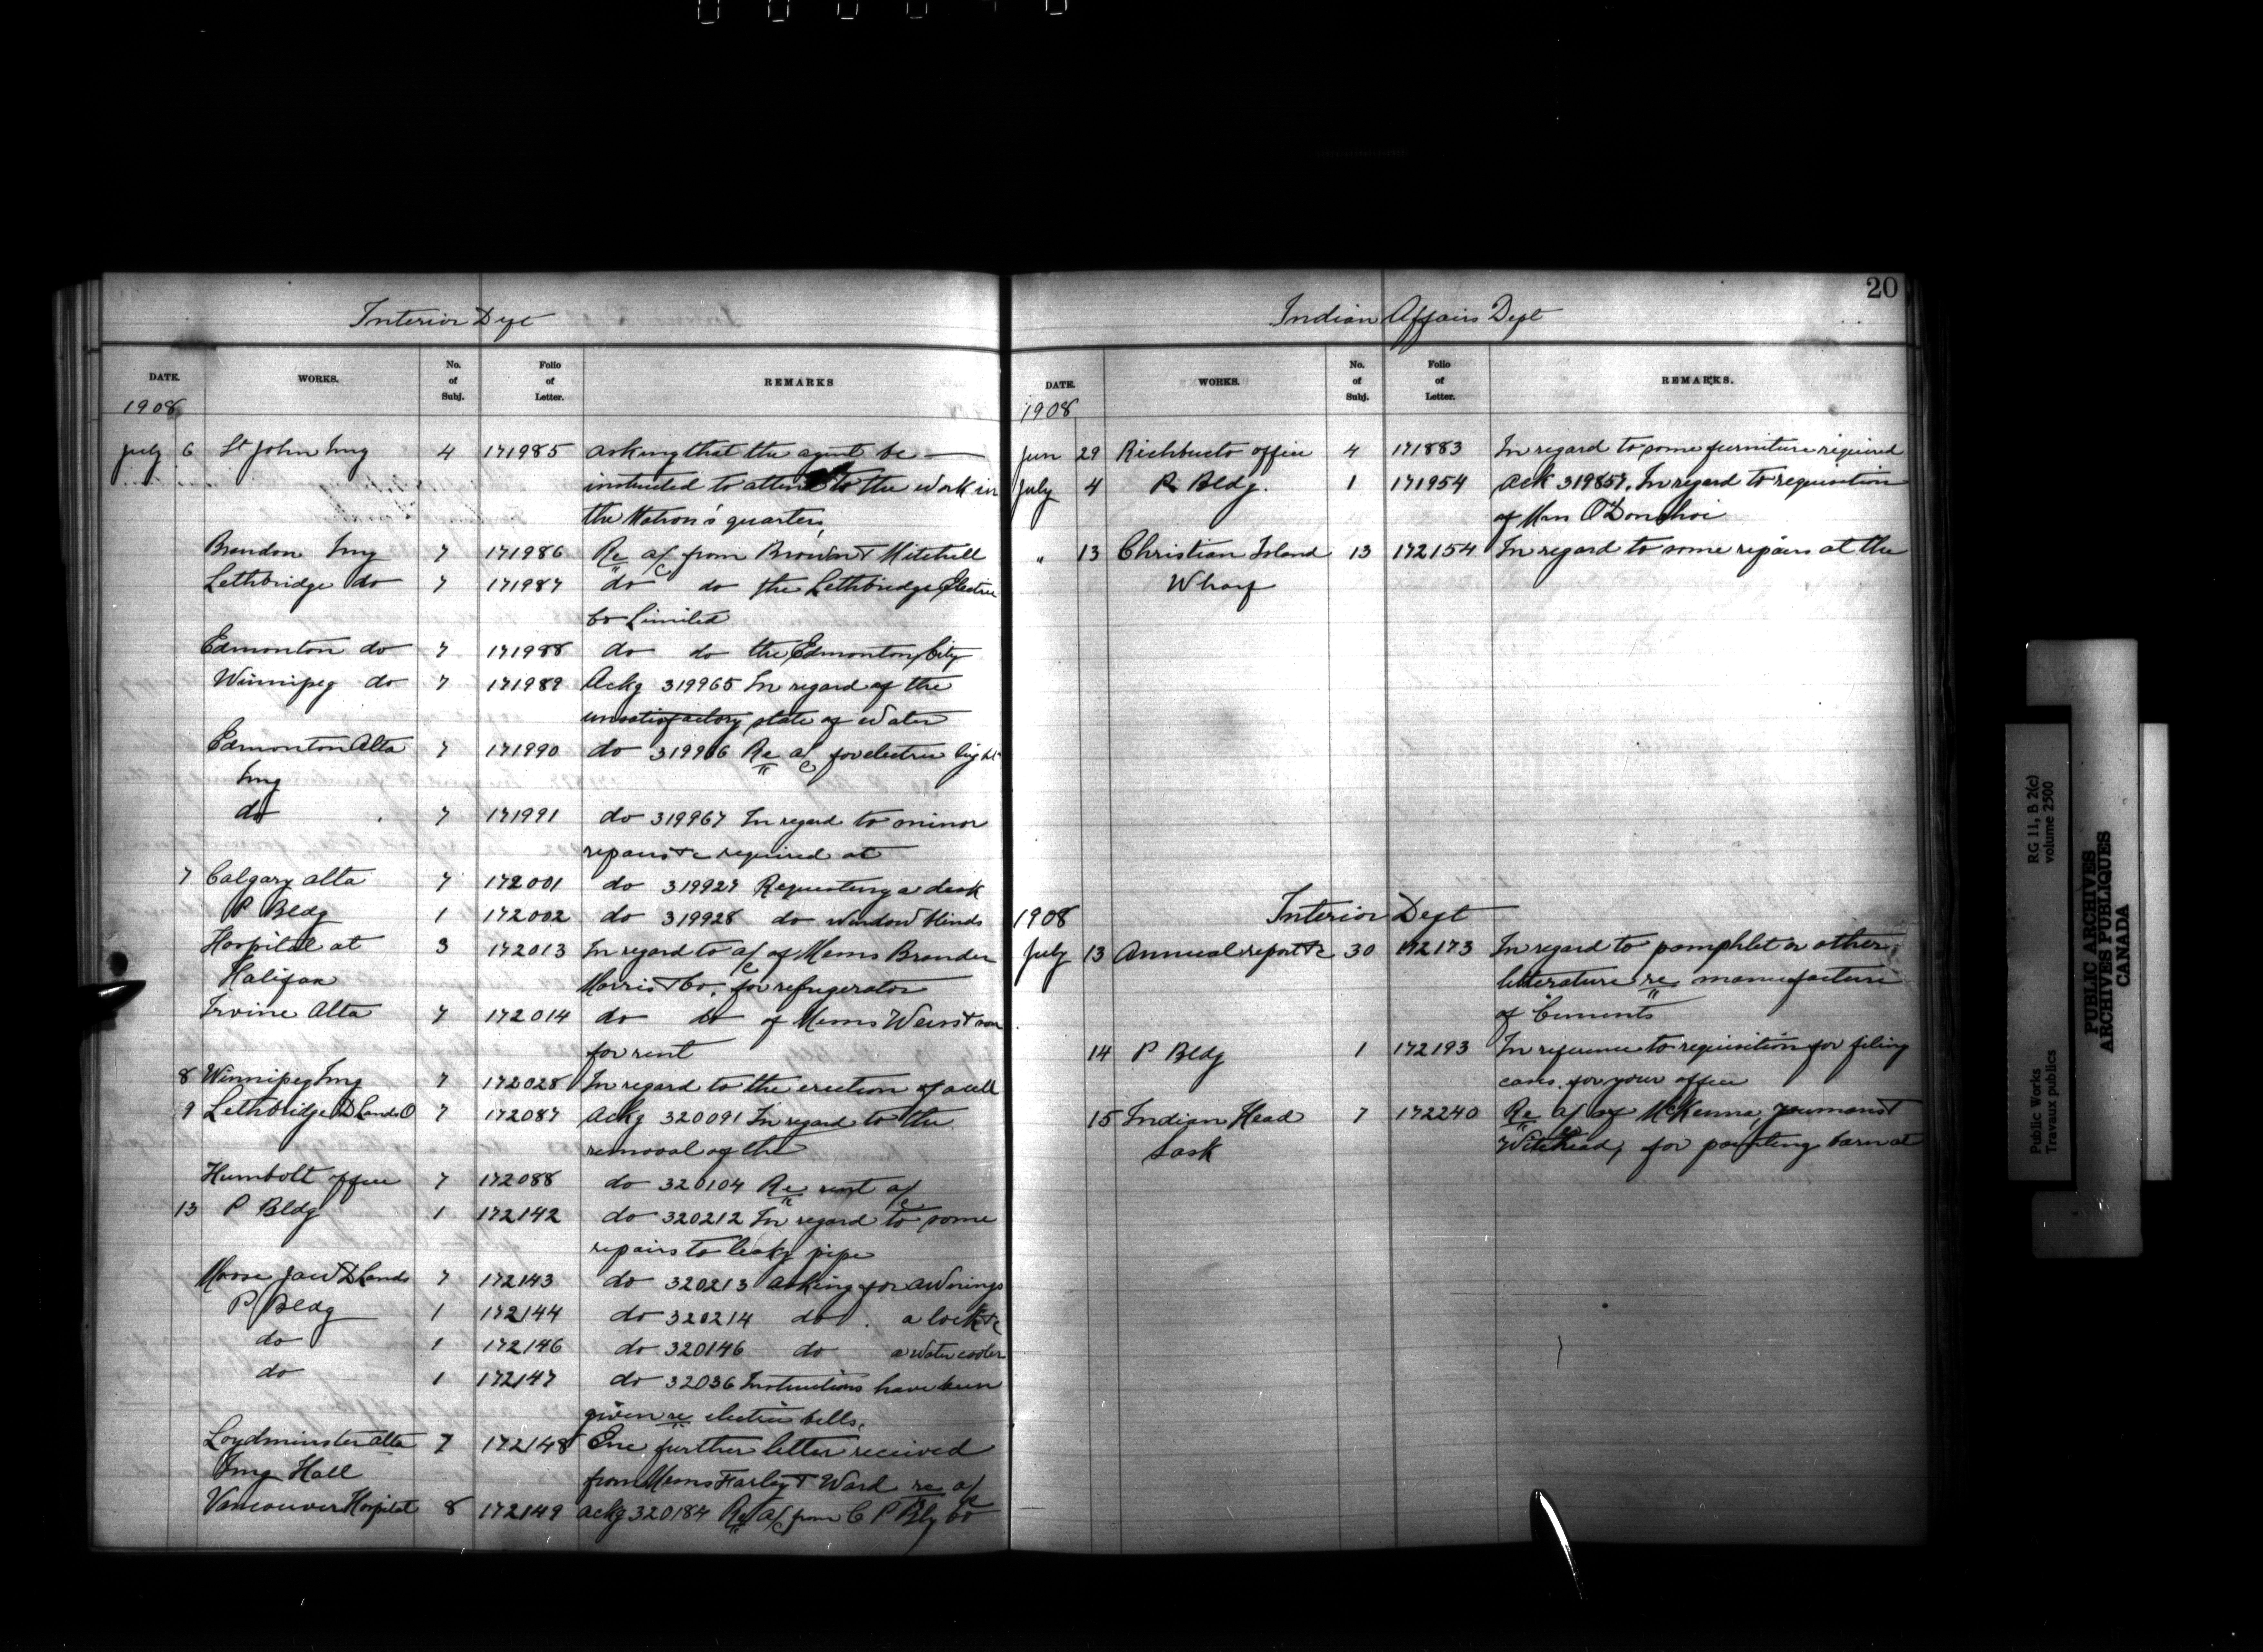 Interior Dept
DATE. WORKS. No. of Subj. Folio of Letter. REMARKS
1908
July 6 St John Img 4 171985 Asking that the agent be
instructed to attend to the work in
the Matron's quarters,
Brandon Img 7 171986 Re a/c from Brown & Mitchell
Lethbridge do 7 171987 do do the Lethbridge Electric
Co Limited
Edmonton do 7 171988 do do the Edmonton City
Winnipeg do 7 171989 Ackg 319965 In regard of the
unsatisfactory state of water
Edmonton Alta 7 171990 do 319966 Re a/c for electric light
Img
do 7 171991 do 319967 In regard to minor
repairs &c required at
7 Calgary Alta 7 172001 do 319927 Requesting a desk
P Bldg 1 172002 do 319928 do window blinds
Hospital at 3 172013 In regard to a/c of Messrs Brander
Halifax Morris & Co. for refrigerator
Irvine Alta 7 172014 do do of Messrs Weiss & son
for rent
8 Winnipeg Img 7 172028 In regard to the erection of a cell
9 Lethbridge D Lands O 7 172087 Ackg 320091 In regard to the
removal of the
Humbolt office 7 172088 do 320104 Re rent a/c
13 P Bldg 1 172142 do 320212 In regard to some
repairs to leaky pipe
Moose Jaw D Lands 7 172143 do 320213 Asking for awnings
P Bldg 1 172144 do 320214 do a lock &c
do 1 172146 do 320146 do a water cooler
do 1 172147 do 32036 Instructions have been
given re electric bells,
Loydminster Alta 7 172148 Enc further letter received
Img Hall from Messrs Farley & Ward re a/c
Vancouver Hospital 8 172149 Ackg 320184 Re a/c from C P Rly Co
20
Indian Affairs Dept
DATE. WORKS. No. of Subj. Folio of Letter. REMARKS.
1908
Jun 29 Richbucto office 4 171883 In regard to some furniture required
July 4 P. Bldg. 1 171954 Ack 319857. In regard to requisition
of Mrs O'Donohoe
" 13 Christian Island 13 172154 In regard to some repairs at the
Wharf
1908 Interior Dept
July 13 Annual report &c 30 172173 In regard to pamphlet or other
litterature re manufacture
of Cements
14 P Bldg 1 172193 In reference to requisition for filing
cases for your office
15 Indian Head 7 172240 Re a/c of McKenna, Youmans &
Sask Witehead, for painting barn at
RG 11, B 2(c)
volume 2500
Public Works
Travaux publics
PUBLIC ARCHIVES
ARCHIVES PUBLIQUES
CANADA